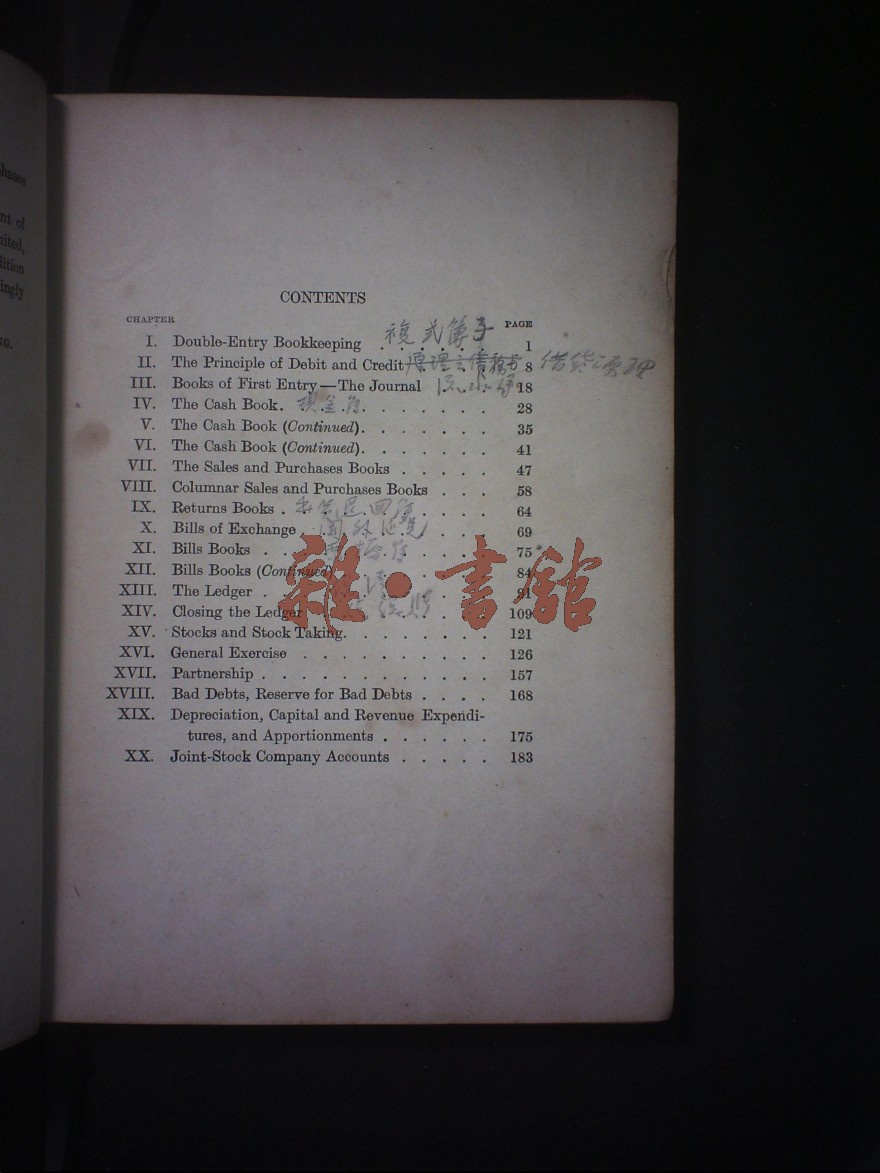 hases
nt of
nited,
lition
ingly
NG.
CONTENTS
CHAPTER PAGE
I. Double-Entry Bookkeeping . . . . . . 1 複式
II. The Principle of Debit and Credit . . . . . . 8
III. Books of First Entry—The Journal . . . . 18
IV. The Cash Book . . . . . . . . . . . 28
V. The Cash Book (Continued) . . . . . . . 35
VI. The Cash Book (Continued) . . . . . . . 41
VII. The Sales and Purchases Books . . . . . 47
VIII. Columnar Sales and Purchases Books . . . 58
IX. Returns Books . . . . . . . . . . . 64
X. Bills of Exchange . . . . . . . . . . 69
XI. Bills Books . . . . . . . . . . . . 75
XII. Bills Books (Continued) . . . . . . . . 84
XIII. The Ledger . . . . . . . . . . . . 91
雜·書館
XIV. Closing the Ledger . . . . . . . . . 109
XV. Stocks and Stock Taking. . . . . . . . 121
XVI. General Exercise . . . . . . . . . . 126
XVII. Partnership . . . . . . . . . . . . 157
XVIII. Bad Debts, Reserve for Bad Debts . . . . 168
XIX. Depreciation, Capital and Revenue Expendi-
tures, and Apportionments . . . . . . 175
XX. Joint-Stock Company Accounts . . . . . 183